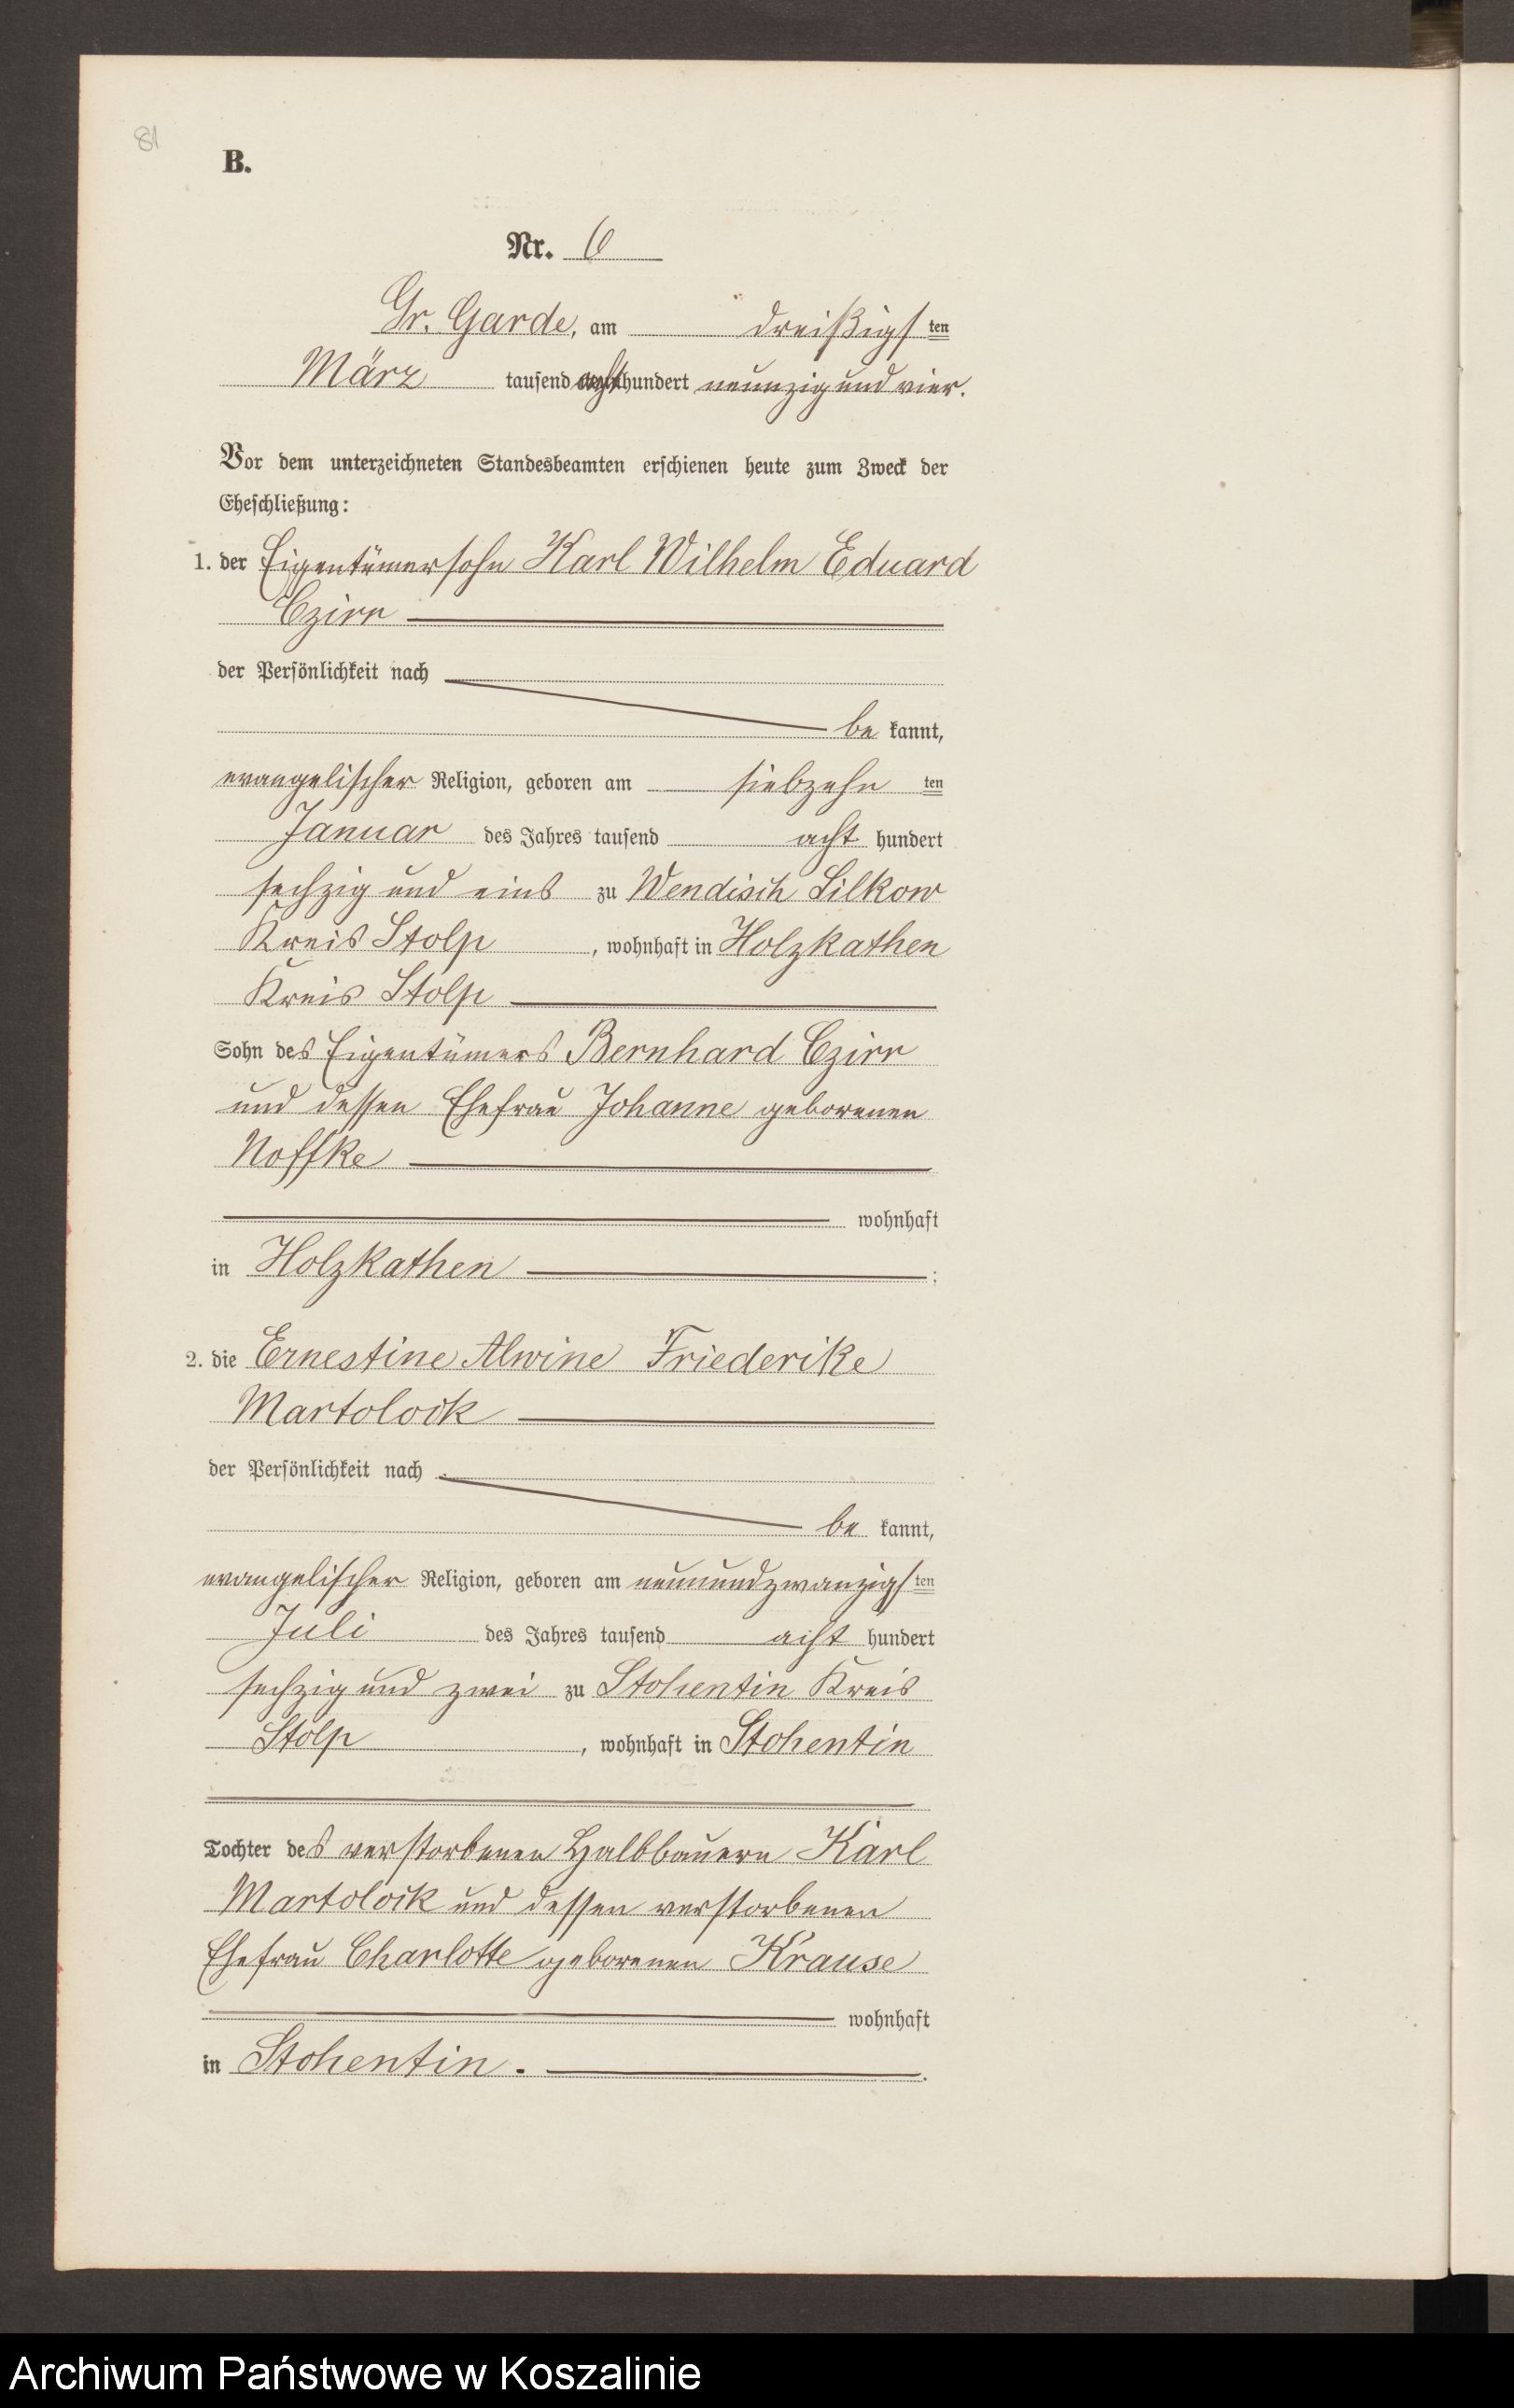 81
B.
Nr. 6
Gr. Garde, am dreißigsten
März tausend achthundert neunzig und vier.
Vor dem unterzeichneten Standesbeamten erschienen heute zum Zweck der
Eheschließung:
1. der Eigentümersohn Karl Wilhelm Eduard
Czirr
der Persönlichkeit nach
be kannt,
evangelischer Religion, geboren am siebzehn ten
Januar des Jahres tausend acht hundert
sechzig und eins zu Wendisch Silkow
Kreis Stolp, wohnhaft in Holzkathen
Kreis Stolp
Sohn des Eigentümers Bernhard Czirr
und dessen Ehefrau Johanne geborenen
Noffke
wohnhaft
in Holzkathen ;
2. die Ernestine Alwine Friederike
Martolock
der Persönlichkeit nach
be kannt,
evangelischer Religion, geboren am neunundzwanzigsten
Juli des Jahres tausend acht hundert
sechzig und zwei zu Stohentin Kreis
Stolp, wohnhaft in Stohentin
Tochter des verstorbenen Halbbauern Karl
Martolock und dessen verstorbenen
Ehefrau Charlotte geborenen Krause
wohnhaft
in Stohentin.
Archiwum Państwowe w Koszalinie